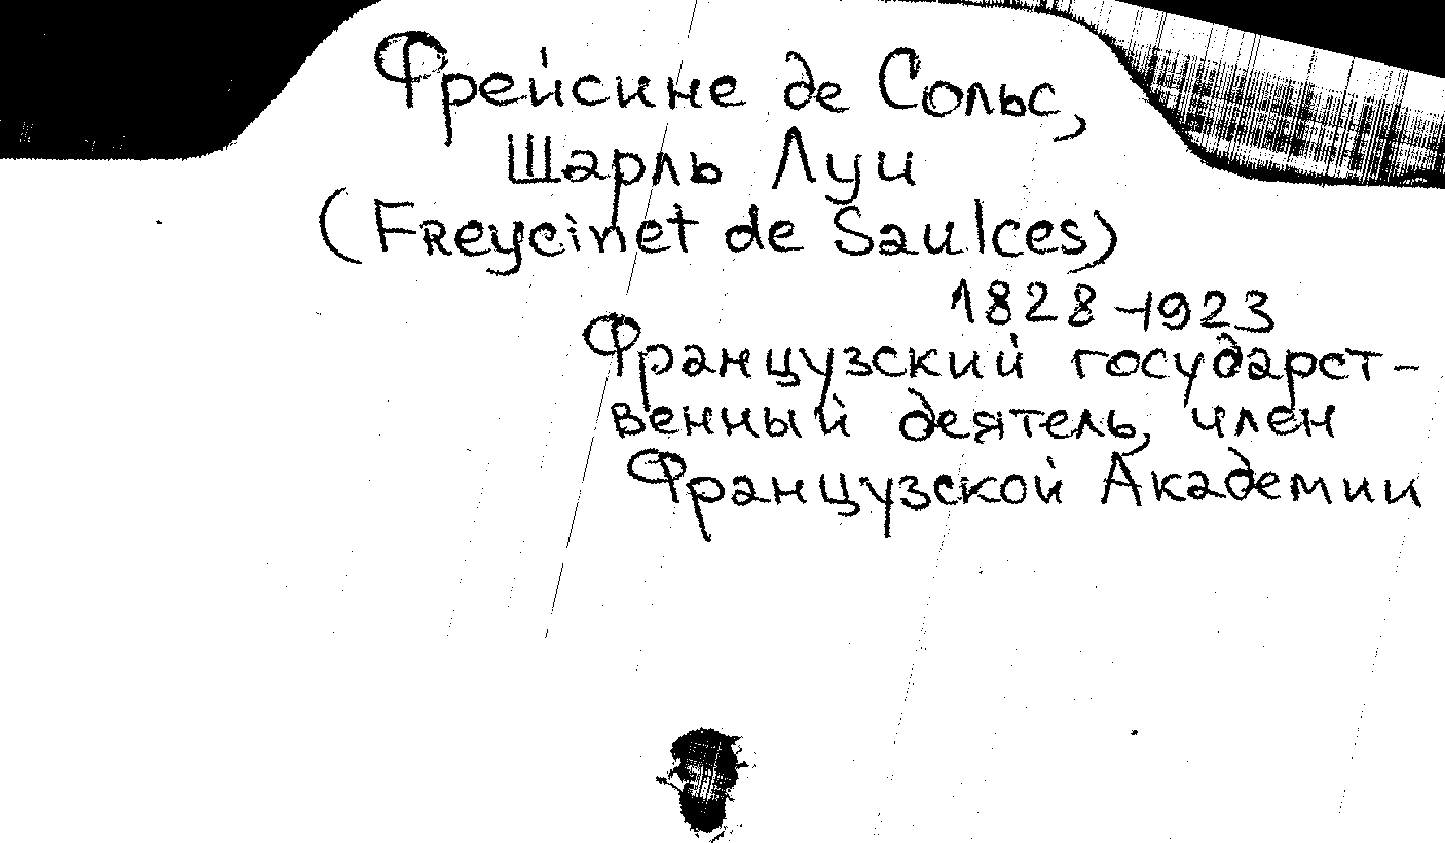 Фрейсине де Сольс,
Шарль Луи
(Freycinet de Saulces)
1828-1923
Французский государст-
венный деятель, член
Французской Академии